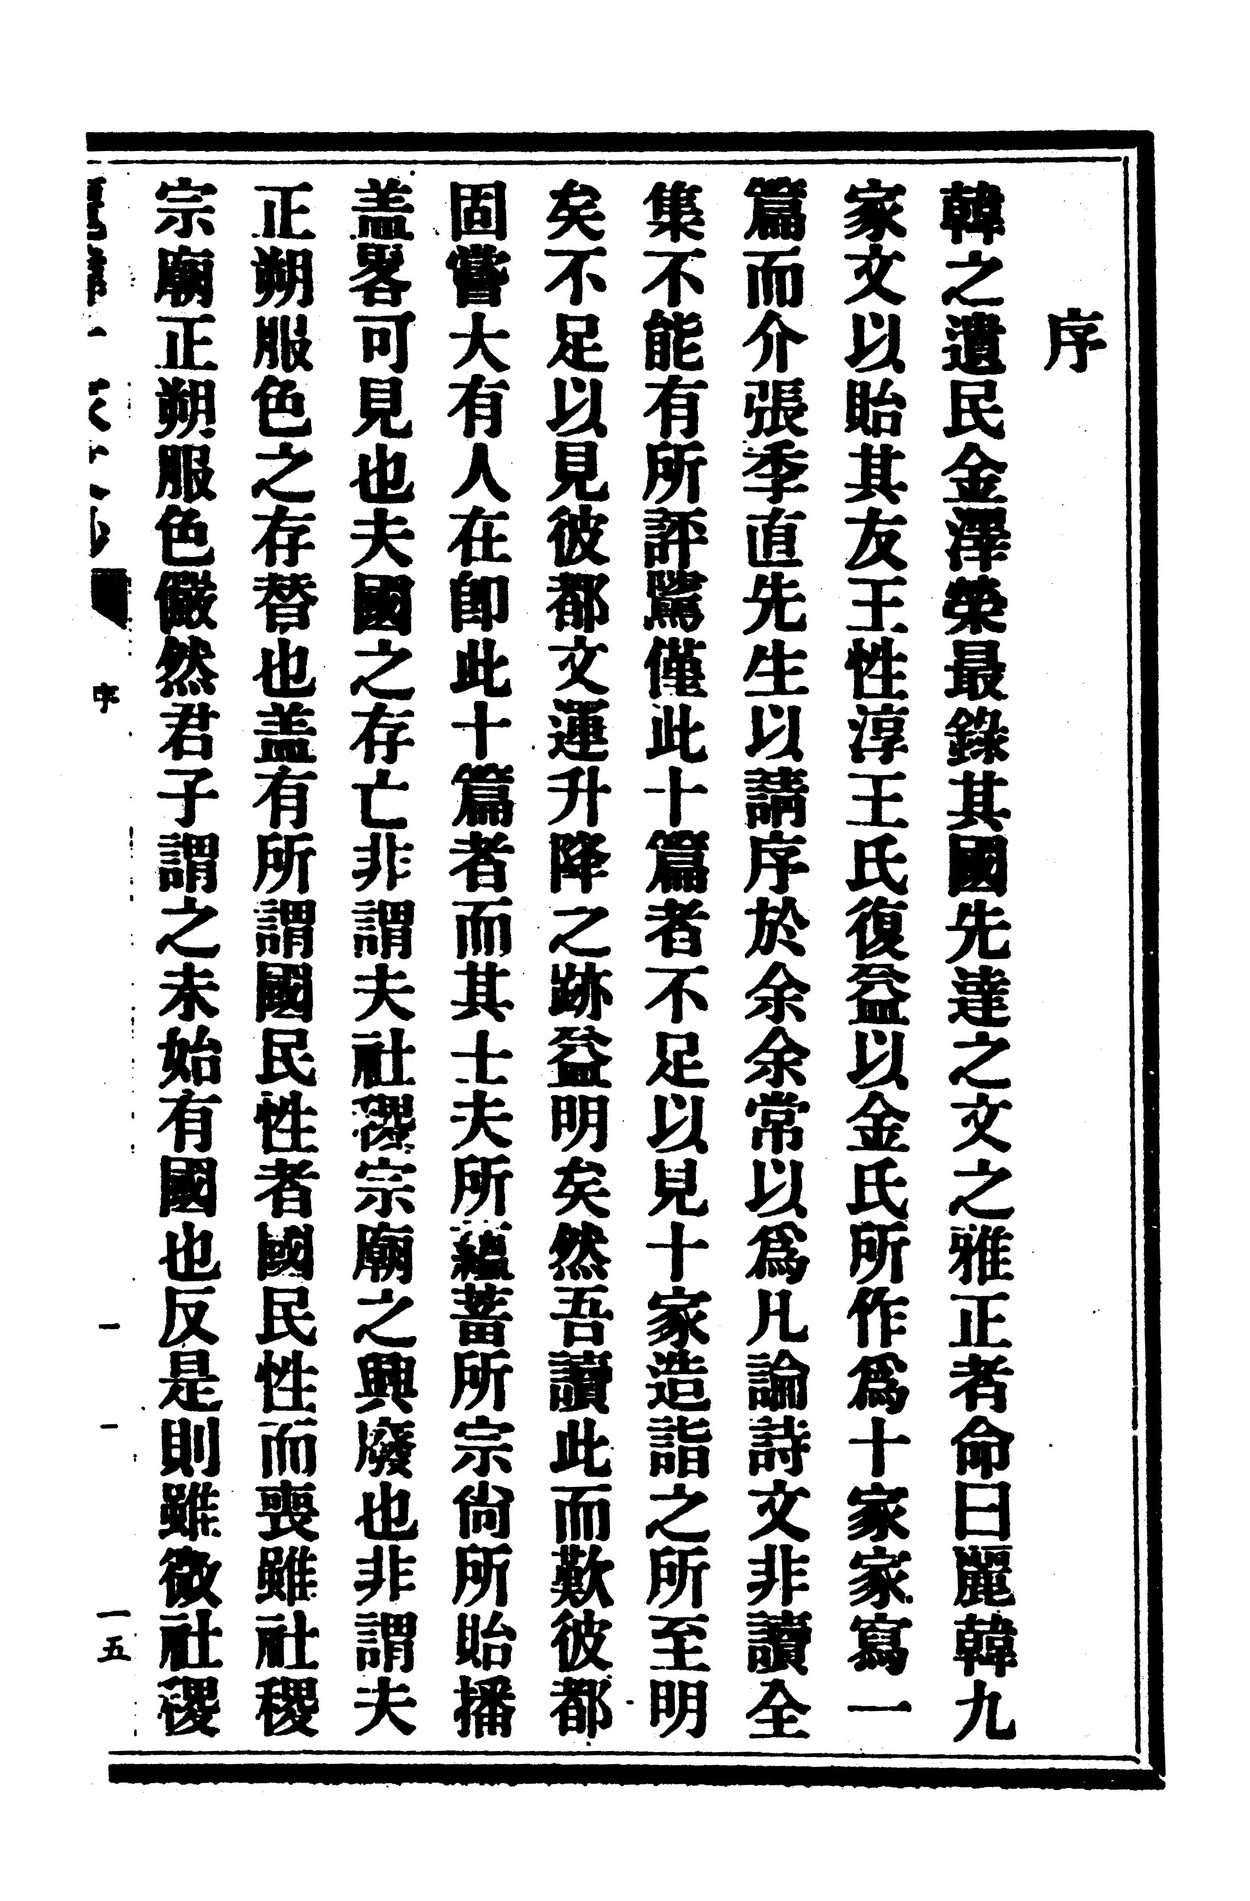 序
韓之遺民金澤榮最錄其國先達之文之雅正者命曰麗韓九
家文以貽其友王性淳王氏復益以金氏所作爲十家家寫一
篇而介張季直先生以請序於余余常以爲凡論詩文非讀全
集不能有所評騭僅此十篇者不足以見十家造詣之所至明
矣不足以見彼都文運升降之跡益明矣然吾讀此而歎彼都
固嘗大有人在卽此十篇者而其士夫所蘊蓄所宗尙所貽播
盖畧可見也夫國之存亡非謂夫社稷宗廟之興廢也非謂夫
正朔服色之存替也盖有所謂國民性者國民性而喪雖社稷
宗廟正朔服色儼然君子謂之未始有國也反是則雖微社稷
序
一
一
一五